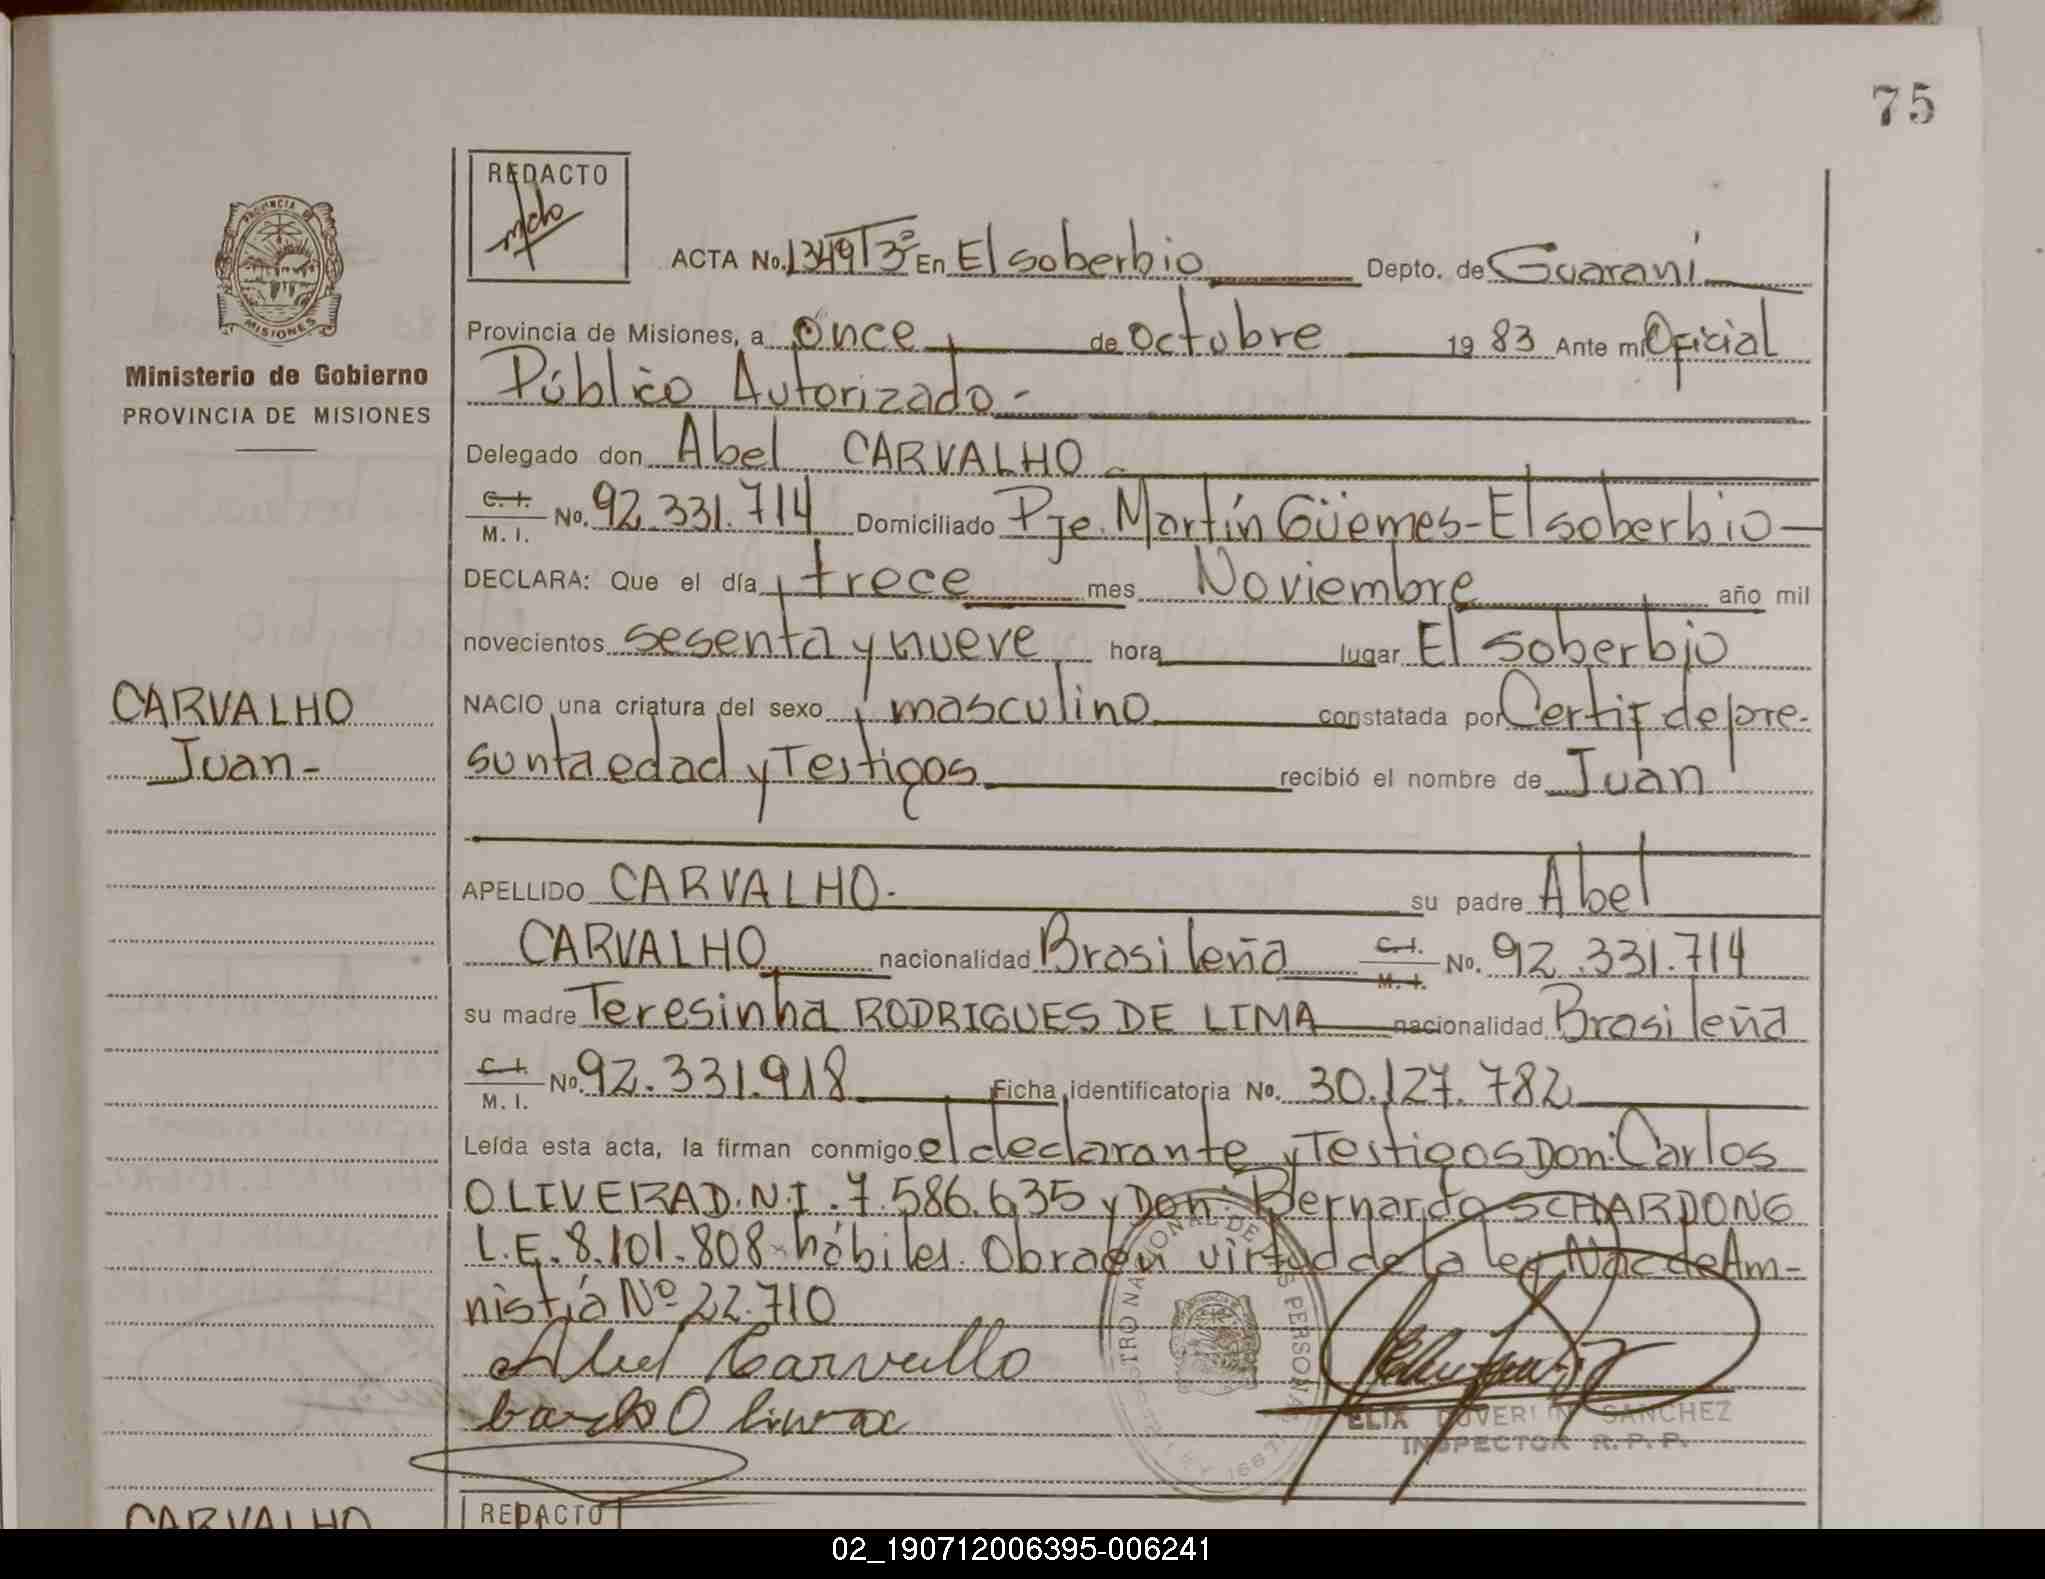 75
REDACTO
ACTA No. 1349 T3º En El soberbio Depto. de Guaraní
PROVINCIA DE
MISIONES
Provincia de Misiones, a once de octubre 1983 Ante mi Oficial
Ministerio de Gobierno
PROVINCIA DE MISIONES
Público Autorizado.-
Delegado don Abel CARVALHO
C.I. M.I. No. 92.331.714 Domiciliado Pje. Martín Güemes-El soberbio-
DECLARA: Que el día trece mes Noviembre año mil
novecientos sesenta y nueve hora lugar El soberbio
CARVALHO
Juan-
NACIO una criatura del sexo masculino constatada por Certif de pre-
sunta edad y Testigos recibió el nombre de Juan
APELLIDO CARVALHO- su padre Abel
CARVALHO nacionalidad Brasileña C.I. M.I. No. 92.331.714
su madre Teresinha RODRIGUES DE LIMA nacionalidad Brasileña
C.I. M.I. No. 92.331.918 Ficha identificatoria No. 30.127.782
Leída esta acta, la firman conmigo el declarante y Testigos Don: Carlos
OLIVEIRA D.N.I. 7.586.635 y Don: Bernardo SCHARDONG
L.E. 8.101.808 hábiles. Obra en virtud de la ley Nac de Am-
nistía Nº 22.710
Abel Carvallo
Carlos Olivera
SANCHEZ
INSPECTOR R.P.P.
CARVALHO
REDACTO
02_190712006395-006241